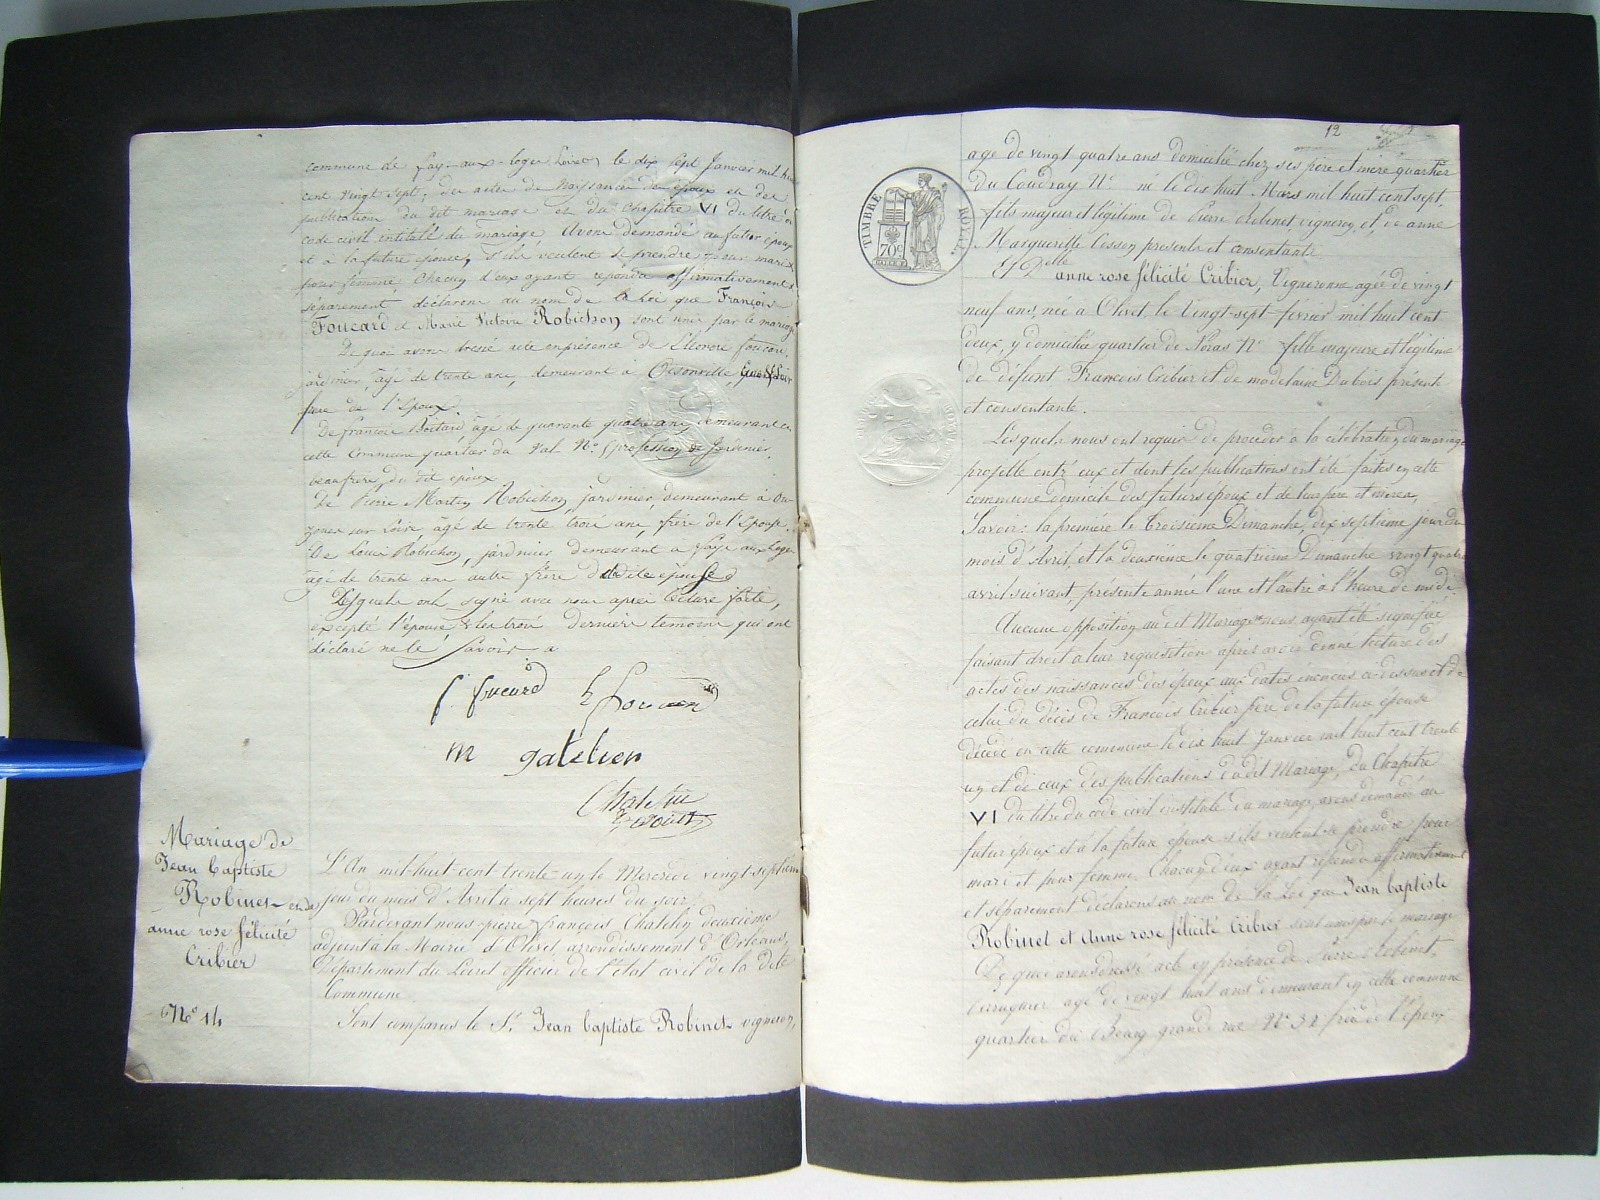 commune de fay-aux-loges Loiret, le dix sept Janvier mil huit
cent vingt sept; des actes de naissances des époux et des
publication du dit mariage et du chapitre VI du titre du
code civil intitulé du mariage, Avons demandé au futur époux
et à la future épouse, s'ils veulent se prendre pour mari et
pour femme, chacun d'eux ayant repondu affirmativement &
séparement déclarons au nom de la loi que François
Foucard et Marie Victoire Robichon sont unis par le mariage
De quoi avons dressé acte en présence de foucard
jardinier, âgé de trente ans, demeurant à
frere de l'Epoux
De françois Botard âgé de quarante quatre ans, demeurant en
cette Commune quartier du Val No. profession de Jardinier,
beaufrere, du dit époux
De Pierre Martin Robichon, jardinier, demeurant à Ou-
zouer sur Loire âgé de trente trois ans, frère de l'Epouse.
De Louis Robichon, jardinier demeurant a faye aux Loges
âgé de trente ans autre frère de ladite épouse
Lesquels ont signé avec nous après lecture faite,
excepté l'épouse & les trois derniers temoins qui ont
déclaré ne le Savoir
f. foucard
m gatelier
Chatelin
Mariage de
Jean baptiste
Robinet et de
anne rose félicité
Cribier
No 14
L'An mil-huit-cent trente un, le Mercredi vingt-septième
jour du mois d'Avril à sept heures du soir,
Pardevant nous pierre françois Chatelin deuxième
adjoint à la Mairie d'Olivet, arrondissement d'Orléans,
Département du Loiret officier de l'état civil de la dite
Commune.
Sont comparus le Sr. Jean baptiste Robinet vigneron,
12
TIMBRE ROYAL
70c
agé de vingt quatre ans domicilié chez ses père et mère quartier
du Coudray No né le dix huit Mars mil huit cent sept,
fils majeur et légitime de Pierre Robinet vigneron et de anne
Marguerite Cosson presents et consentants
Et Delle
anne rose félicité Cribier, Vigneronne agée de vingt
neuf ans, née à Olivet le Vingt-sept février mil huit cent
deux, y domiciliée quartier de Noras No fille majeure et légitime
de défunt François Cribier et de madelaine Dubois présente
et consentante.
Lesquels nous ont requis de procéder à la célébration du mariage
projetté entr'eux et dont les publications ont été faites en cette
commune domicile des futurs époux et de leurs père et mères,
Savoir: la première le troisième Dimanche, dix septième jour du
mois d'Avril, et la deuxième le quatrième Dimanche vingt quatre
avril suivant, présente année l'une et l'autre à l'heure de midi.
Aucune opposition au dit Mariage nous ayant été signifiée
faisant droit à leur requisition après avoir donné lecture des
actes des naissances des époux aux dates énoncées ci-dessus et de
celui du décès de François Cribier père de la future épouse
décédé en cette commune le dix huit Janvier mil huit cent trente
un et de ceux des publications dudit Mariage, du Chapitre
VI du titre du code civil institulé du mariage, avons demandé au
futur époux et à la future épouse s'ils veulent se prendre pour
mari et pour femme. Chacun d'eux ayant répondu affirmativement
et séparément déclarons au nom de la Loi que Jean baptiste
Robinet et Anne rose félicité Cribier sont unis par le mariage
De quoi avons dressé acte en présence de Pierre Robinet,
perruquier agé de vingt huit ans demeurant en cette commune
quartier du Bourg grande rue No 32 frère de l'époux